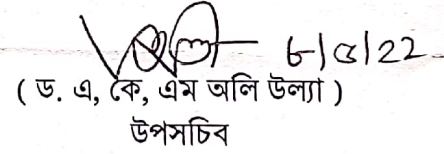 ৮/৫/২২
( ড. এ, কে, এম অলি উল্যা )
উপসচিব